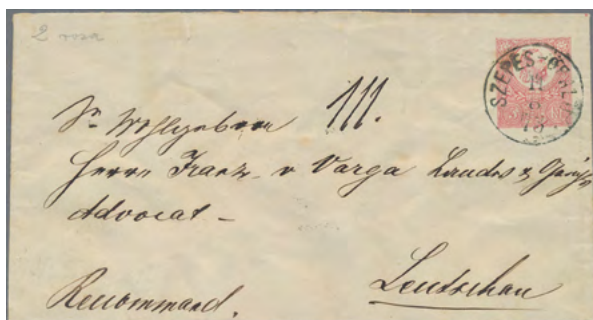 2 rosa
SZEPES-
11
111.
Sr Wohlgeboren
Herrn Franz v Varga Landes &
Advocat -
Leutschau
Recommand.